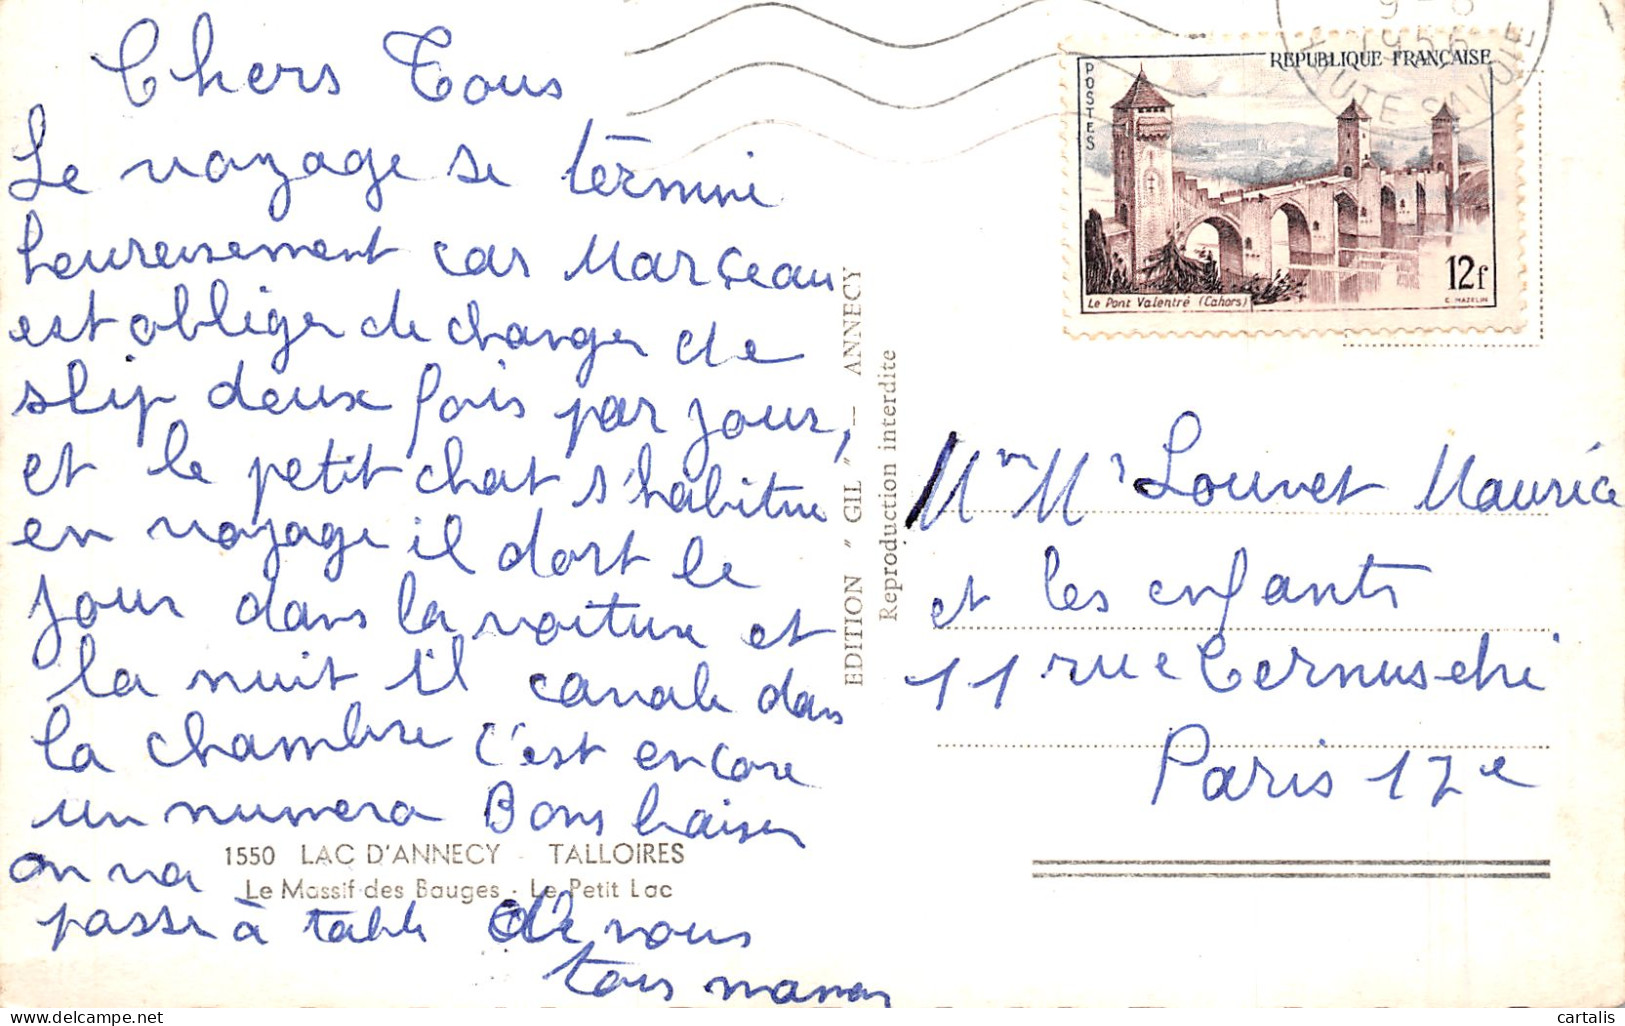 Chers Tous
Le voyage se términe
heureusement car Marçeau
est obliger de changer de
slip deux fois par jour,
et le petit chat s'habitue
en voyage il dort le
jour dans la voiture et
la nuit il cavale dans
la chambre c'est encore
un numero Bons baiser
on va
passe à table de vous
tous maman
1550 LAC D'ANNECY - TALLOIRES
Le Massif des Bauges - Le Petit Lac
EDITION " GIL " — ANNECY
Reproduction interdite
9-8
1955
HAUTE SAVOIE
REPUBLIQUE FRANÇAISE
POSTES
12f
Le Pont Valentré (Cahors)
C. MAZELIN
Mm Mr Louvet Maurice
et les enfants
11 rue Cernuschi
Paris 17e
cartalis